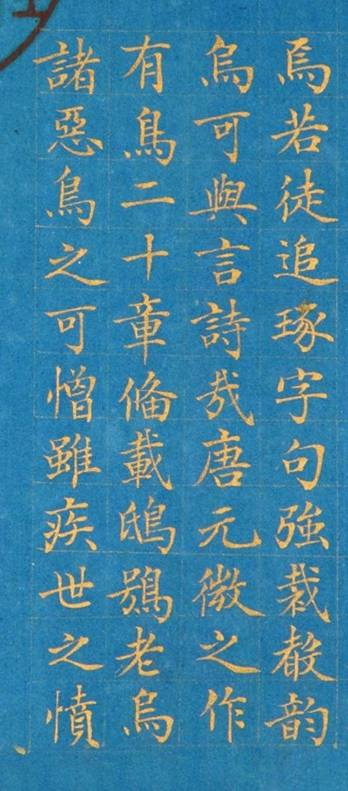 焉若徒追琢字句強裁聲韻
烏可與言詩哉唐元微之作
有鳥二十章俻載鴟鴞老烏
諸惡鳥之可憎雖疾世之憤